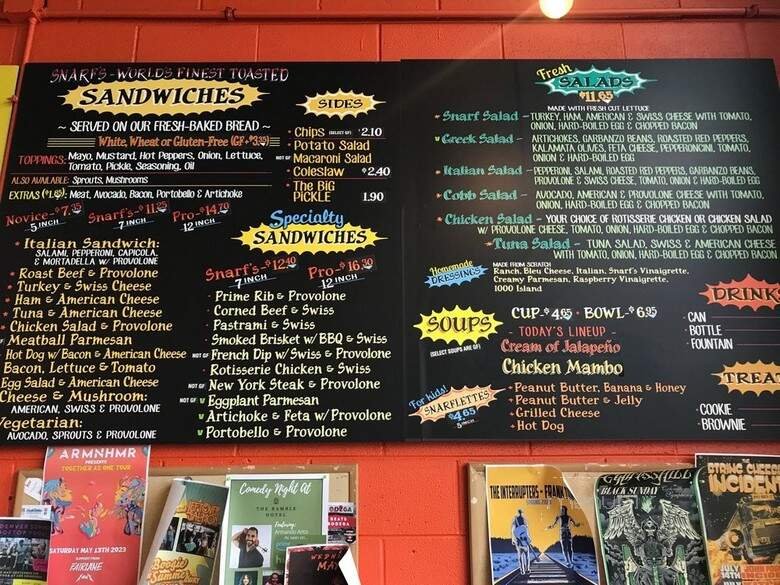 SNARF'S - WORLD'S FINEST TOASTED
SANDWICHES
~ SERVED ON OUR FRESH-BAKED BREAD ~
White, Wheat or Gluten-Free (GF +$3.35)
TOPPINGS: Mayo, Mustard, Hot Peppers, Onion, Lettuce,
Tomato, Pickle, Seasoning, Oil
ALSO AVAILABLE: Sprouts, Mushrooms
EXTRAS: Meat, Avocado, Bacon, Portobello & Artichoke
Novice - $7.35 Snarf's - $11.25 Pro - $14.70
5 INCH 7 INCH 12 INCH
Italian Sandwich:
SALAMI, PEPPERONI, CAPICOLA
& MORTADELLA W/ PROVOLONE
Roast Beef & Provolone
Turkey & Swiss Cheese
Ham & American Cheese
Tuna & American Cheese
Chicken Salad & Provolone
Meatball Parmesan
Hot Dog w/Bacon & American Cheese
Bacon, Lettuce & Tomato
Egg Salad & American Cheese
Cheese & Mushroom:
AMERICAN, SWISS & PROVOLONE
Vegetarian:
AVOCADO, SPROUTS & PROVOLONE
SIDES
Chips (SELECT GF) $2.10
Potato Salad
NOT GF Macaroni Salad
Coleslaw $2.40
The BIG
PICKLE 1.90
Specialty
SANDWICHES
Snarf's - $12.40 Pro - $16.30
7 INCH 12 INCH
Prime Rib & Provolone
Corned Beef & Swiss
Pastrami & Swiss
Smoked Brisket w/ BBQ & Swiss
NOT GF French Dip w/ Swiss & Provolone
Rotisserie Chicken & Swiss
NOT GF New York Steak & Provolone
NOT GF V Eggplant Parmesan
V Artichoke & Feta w/Provolone
V Portobello & Provolone
Fresh
SALADS
$11.65
MADE WITH FRESH CUT LETTUCE
Snarf Salad - TURKEY, HAM, AMERICAN & SWISS CHEESE WITH TOMATO,
ONION, HARD-BOILED EGG & CHOPPED BACON
V Greek Salad - ARTICHOKES, GARBANZO BEANS, ROASTED RED PEPPERS,
KALAMATA OLIVES, FETA CHEESE, PEPPERONCINI, TOMATO,
ONION & HARD-BOILED EGG
Italian Salad - PEPPERONI, SALAMI, ROASTED RED PEPPERS, GARBANZO BEANS,
PROVOLONE & SWISS CHEESE, TOMATO, ONION & HARD-BOILED EGG
Cobb Salad - AVOCADO, AMERICAN & PROVOLONE CHEESE WITH TOMATO,
ONION, HARD-BOILED EGG & CHOPPED BACON
Chicken Salad - YOUR CHOICE OF ROTISSERIE CHICKEN OR CHICKEN SALAD
W/ PROVOLONE CHEESE, TOMATO, ONION, HARD-BOILED EGG & CHOPPED BACON
Tuna Salad - TUNA SALAD, SWISS & AMERICAN CHEESE
WITH TOMATO, ONION, HARD-BOILED EGG & CHOPPED BACON
Homemade
DRESSINGS
MADE FROM SCRATCH
Ranch, Bleu Cheese, Italian, Snarf's Vinaigrette,
Creamy Parmesan, Raspberry Vinaigrette,
1000 Island
SOUPS
(SELECT SOUPS ARE GF)
CUP - $4.65 BOWL - $6.95
- TODAY'S LINEUP -
Cream of Jalapeño
Chicken Mambo
For kids!
SNARFLETTES
$4.65
5 INCH
Peanut Butter, Banana & Honey
Peanut Butter & Jelly
Grilled Cheese
Hot Dog
DRINK
CAN
BOTTLE
FOUNTAIN
TREA
COOKIE
BROWNIE
ARMNHMR
PRESENTS
TOGETHER AS ONE TOUR
SATURDAY MAY 13TH 2023
FAIRLANE
Boogie
Summer
Comedy Night At
THE RAMBLE
HOTEL
Featuring
THE INTERRUPTERS - FRANK
CYPRESS HILL
BLACK SUNDAY
THE STRING CHEESE
INCIDEN
JULY
14TH